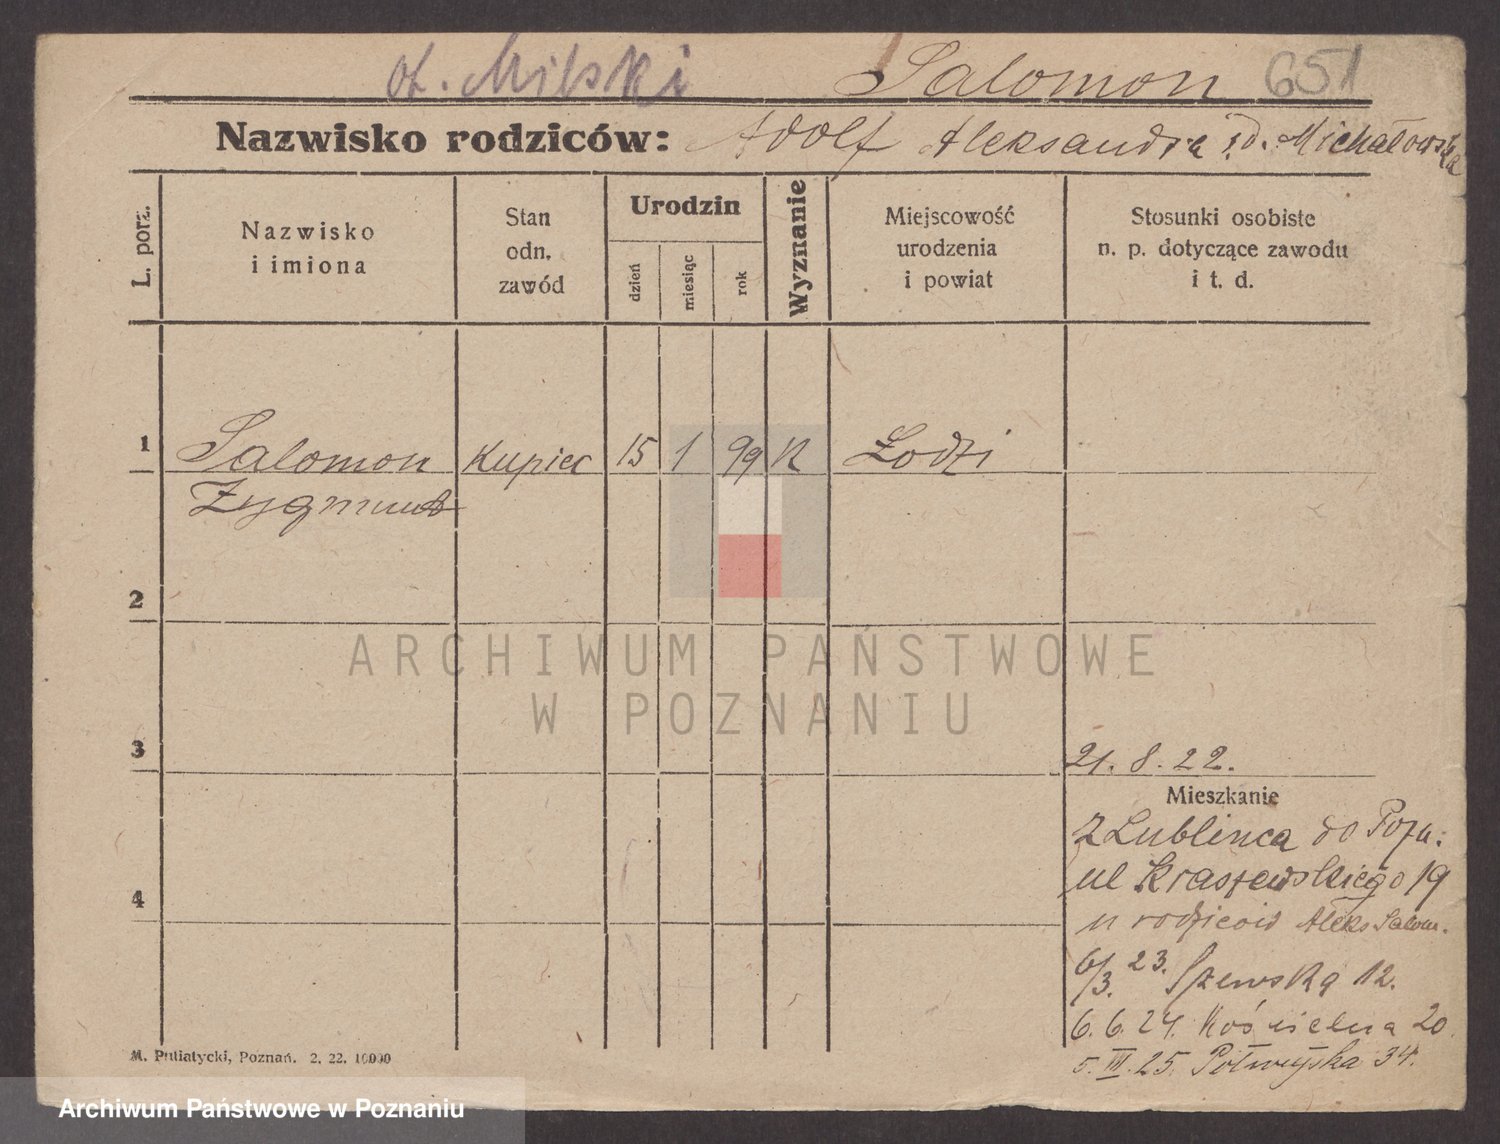 Milski Salomon 651
Nazwisko rodziców: Adolf Aleksandra Michałowska
L. porz.
Nazwisko
i imiona
Stan
odn.
zawód
Urodzin
dzień
miesiąc
rok
Wyznanie
Miejscowość
urodzenia
i powiat
Stosunki osobiste
n. p. dotyczące zawodu
i t. d.
1 Salomon Kupiec 15 1 99 R Łodzi
Zygmunt
2
ARCHIWUM PAŃSTWOWE
W POZNANIU
3 21. 8. 22.
Mieszkanie
z Lublinca do Pozn:
4 ul Kraszewskiego 19
u rodzicow Aleks Salom.
6/3. 23. Szewska 12.
6. 6. 24. Kościelna 20
5. III. 25. Półwiejska 34.
M. Putiatycki, Poznań. 2. 22. 10000
Archiwum Państwowe w Poznaniu